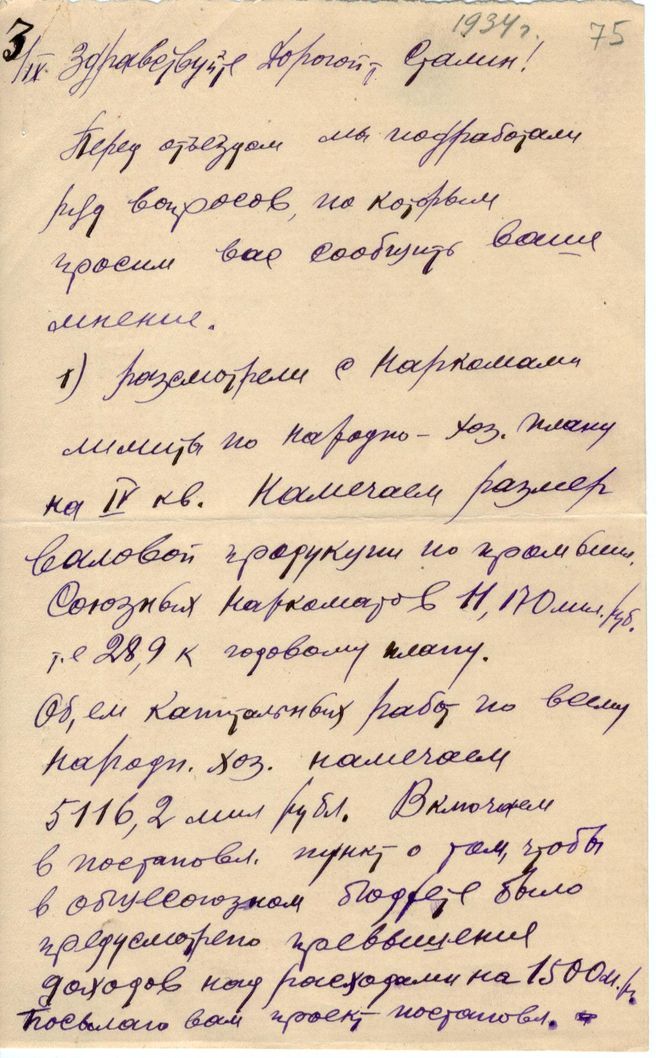 1934 г. 75
3/IX. Здравствуйте Дорогой т. Сталин!
Перед отъездом мы подработали
ряд вопросов, по которым
просим вас сообщить ваше
мнение.
1) разсмотрели с Наркомами
лимиты по народно-хоз. плану
на IV кв. Намечаем размер
валовой продукции по промышл.
Союзных наркоматов 11,170 мил. руб.
т.е 28,9 к годовому плану.
Об,ем капитальных работ по всему
народн. хоз. намечаем
5116,2 мил рубл. Включаем
в постановл. пункт о том, чтобы
в общесоюзном бюджете было
предусмотрено превышение
доходов над расходами на 1500 м. р.
Посылаю вам проект постановл.